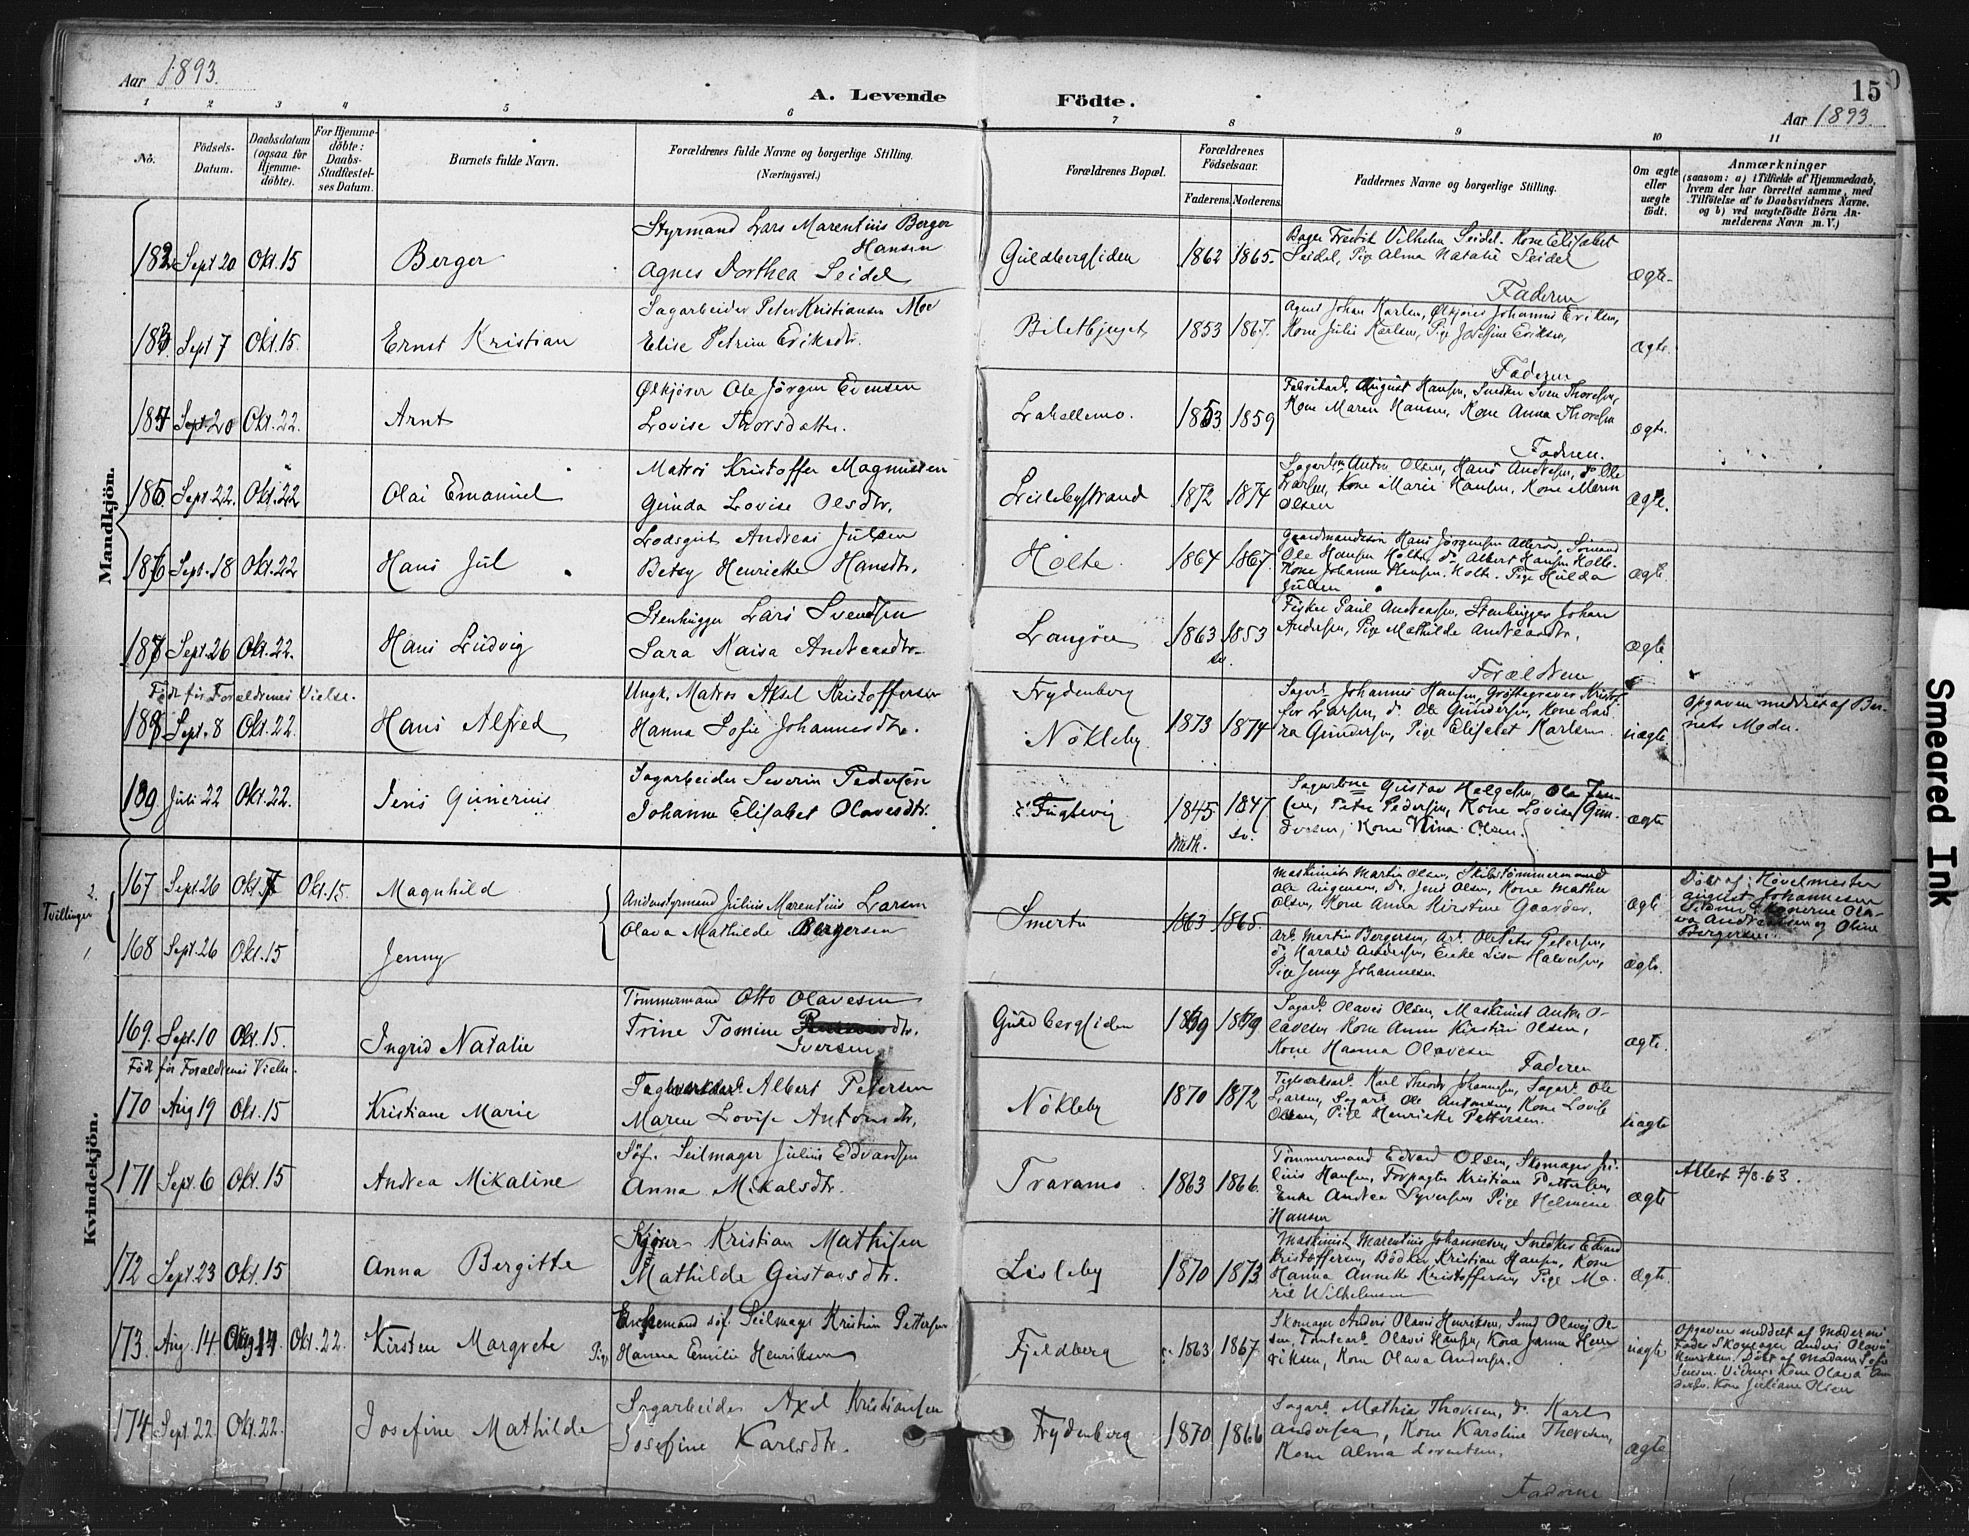 Aar 1893.
A. Levende Födte.
15
Aar 1893.
1 2 3 4 5 6 7 8 9 10 11
No.
Födsels-Datum.
Daabsdatum (ogsaa for Hjemme-döbte).
For Hjemme-döbte: Daabs-Stadfæstel-ses Datum.
Barnets fulde Navn.
Forældrenes fulde Navne og borgerlige Stilling. (Næringsvei.)
Forældrenes Bopæl.
Forældrenes Födselsaar.
Faderens. Moderens.
Faddernes Navne og borgerlige Stilling.
Om ægte eller uægte födt.
Anmærkninger
(saasom: a) i Tilfælde af Hjemmedaab,
hvem der har forrettet samme, med
Tilföielse af to Daabsvidners Navne.
og b) ved uægtefödte Börn An-
melderens Navn m. V.)
Mandkjön.
182 Sept 20 Okt. 15 Berger
Styrmand Lars Marentius Berger Hansen
Agnes Dorthea Seidel
Guldbergsiden 1862 1865.
Bager Fredrik Vilhelm Seidel. Kone Elisabet
Seidel, Pige Alma Natalie Seidel
Faderen
ægte.
183. Sept 7 Okt. 15. Ernst Kristian
Sagarbeider Peter Kristiansen Moe
Elise Petrine Eriksdtr.
1853 1867.
Agent Johan Karlsen, Ølkjører Johannes Eriksen,
Kone Julie Karlsen, Pige Josefine Eriksen,
Faderen
ægte.
184 Sept. 20 Okt. 22. Arnt
Ølkjörer Ole Jörgen Evensen
Lovise Thorsdatter.
Lahellemo. 1853. 1859
Fabrikarb. August Hansen, Snedker Sven Thoresen,
Kone Maren Hansen, Kone Anna Thoresen
Faderen.
ægte.
185. Sept. 22. Okt. 22 Olai Emanuel
Matros Kristoffer Magnussen
Gunda Lovise Olsdtr.
Lislebystrand 1872 1874
Sagarb. Anton Olsen, Hans Andresen, do Ole
Larsen, Kone Marie Hansen, Kone Maren
Olsen
ægte.
186 Sept. 18 Okt. 22 Hans Jul
Lodsgut Andreas Julsen
Betsy Henriette Hansdtr.
Holte. 1864 1867.
Gaardmandssön Hans Jörgensen Sömand
Ole Hansen Holte, do Albert Hansen Holte.
Kone Johanne Hansen. Holte. Pige Hulda
Julsen
ægte.
187 Sept. 26 Okt. 22. Hans Ludvig
Stenhugger Lars Svendsen
Sara Kaisa Andreasdtr.
Langöen 1863 sv. 1853
Fisker Paul Andreassen, Stenhugger Johan
Andersen, Pige Mathilde Andreasdtr.
Forældrene
ægte.
Födt för Forældrenes Vielse.
188 Sept. 8 Okt. 22. Hans Alfred
Ungk. Matros Aksel Kristoffersen
Hanna Sofie Johannesdtr.
Frydenberg
Nökleby. 1873 1874
Sagarb. Johannes Hansen, Gröftegraver Kristof-
fer Larsen, do Ole Gundersen, Kone Lau-
ra Gundersen, Pige Elisabet Karlsen
uægte.
Opgaven meddelt af Bar-
nets Moder.
189. Juli 22 Okt. 22. Jens Gunerius
Sagarbeider Severin Pedersen
Johanne Elisabet Olavesdtr.
Fuglevig 1845. Meth. 1847. sv.
Sagarb. Gustav Helgesen, Ole Jen-
sen, Peter Pedersen, Kone Lovise Gun-
dersen, Kone Nina Olsen.
ægte
Kvindekjön.
Tvillinger 2. 1
167 Sept. 26 Okt. 7 Okt. 15. Magnhild
Andenstyrmand Julius Marentius Larsen
Olava Mathilde Bergersen
Smertu 1863 1865.
Maskinist Martin Olsen, Skibstömmermand
Ole Augensen, Do. Jens Olsen, Kone Mathea
Olsen, Kone Anna Kirstine Gaarder.
ægte
Döbt af: Hövelmester
August Johannesen
Vidner: Konerne Ola-
va Andreassen og Oline
Bergersen.
168 Sept. 26 Okt. 15 Jenny
Arb. Martin Bergersen, Arb. Ole Peter Petersen,
do Harald Andersen, Enke Lisa Halvorsen,
Pige Jenny Johannesen
ægte.
169. Sept. 10 Okt. 15. Ingrid Natalie
Tömmermand Otto Olavesen
Trine Tomine dtr.
Iversen
Guldbergsiden
Sagarb. Olaves Olsen, Maskinist Anton O-
lavesen Kone Anne Kirstine Olsen,
Kone Hanna Olavesen
Faderen
ægte.
Födt för Forældrenes Vielse.
170 Aug 19 Okt. 15 Kristiane Marie
Teglverksarb. Albert Petersen
Maren Lovise Antonsdtr.
Nökleby 1870 1872
Teglverksarb. Karl Theodor Johannesen, Sagarb. Ole
Larsen, Sagarb. Ole Antonsen, Kone Lovise
Olsen, Pige Henriette Pettersen.
uægte
171 Sept. 6 Okt. 15 Andrea Mikaline
Söf. Seilmager Julius Edvardsen
Anna Mikalsdtr.
Traramo. 1863 1866.
Tömmermand Edvard Olsen, Skomager Ju-
lius Hansen, Forpagter Kristian Pettersen,
Enke Andrea Syversen Pige Helmine
Hansen
ægte
Attest 7/8. 63.
172 Sept. 23 Okt. 15 Anna Bergitte
Kjörer Kristian Mathisen
Mathilde Gustavsdtr.
Lisleby 1870 1873
Maskinist Marentius Johannesen, Snedker Edvard
Kristoffersen, Bödker Kristian Hansen, Kone
Hanna Annette Kristoffersen, Pige Ma-
rie Wilhelmsen
ægte.
173. Aug. 14 Okt. 22. Kirsten Margrete
Enkemand söf. Seilmager Kristian Pettersen
Pige Hanna Emilie Henriksen
Fjeldberg 1863 1867.
Skomager Anders Olaves Henriksen, Smed Olaves Ol-
sen, Olaves Hansen, Kone Janna Hen-
riksen, Kone Olava Andersen.
uægte
Opgaven meddelt af Moderens
Fader Skomager Anders Olaves
Henriksen. Döbt af Madam Sofie
Jensen. Vidner: Kone Olava An-
dersen. Kone Juliane Olsen
174 Sept. 22 Okt. 22. Josefine Mathilde
Sagarbeider Axel Kristiansen
Josefine Karlsdtr.
Frydenberg 1870 1866
Sagarb. Mathias Thoresen, do Karl
Andersen, Kone Karoline Thoresen,
Kone Alma Lorentsen,
Faderne
ægte
Smeared Ink